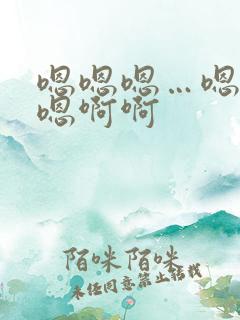 嗯嗯嗯…嗯
嗯啊啊
陌咪陌咪
未经同意禁止转载